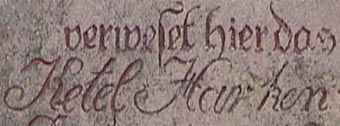 verweset hier das
Ketel Harken